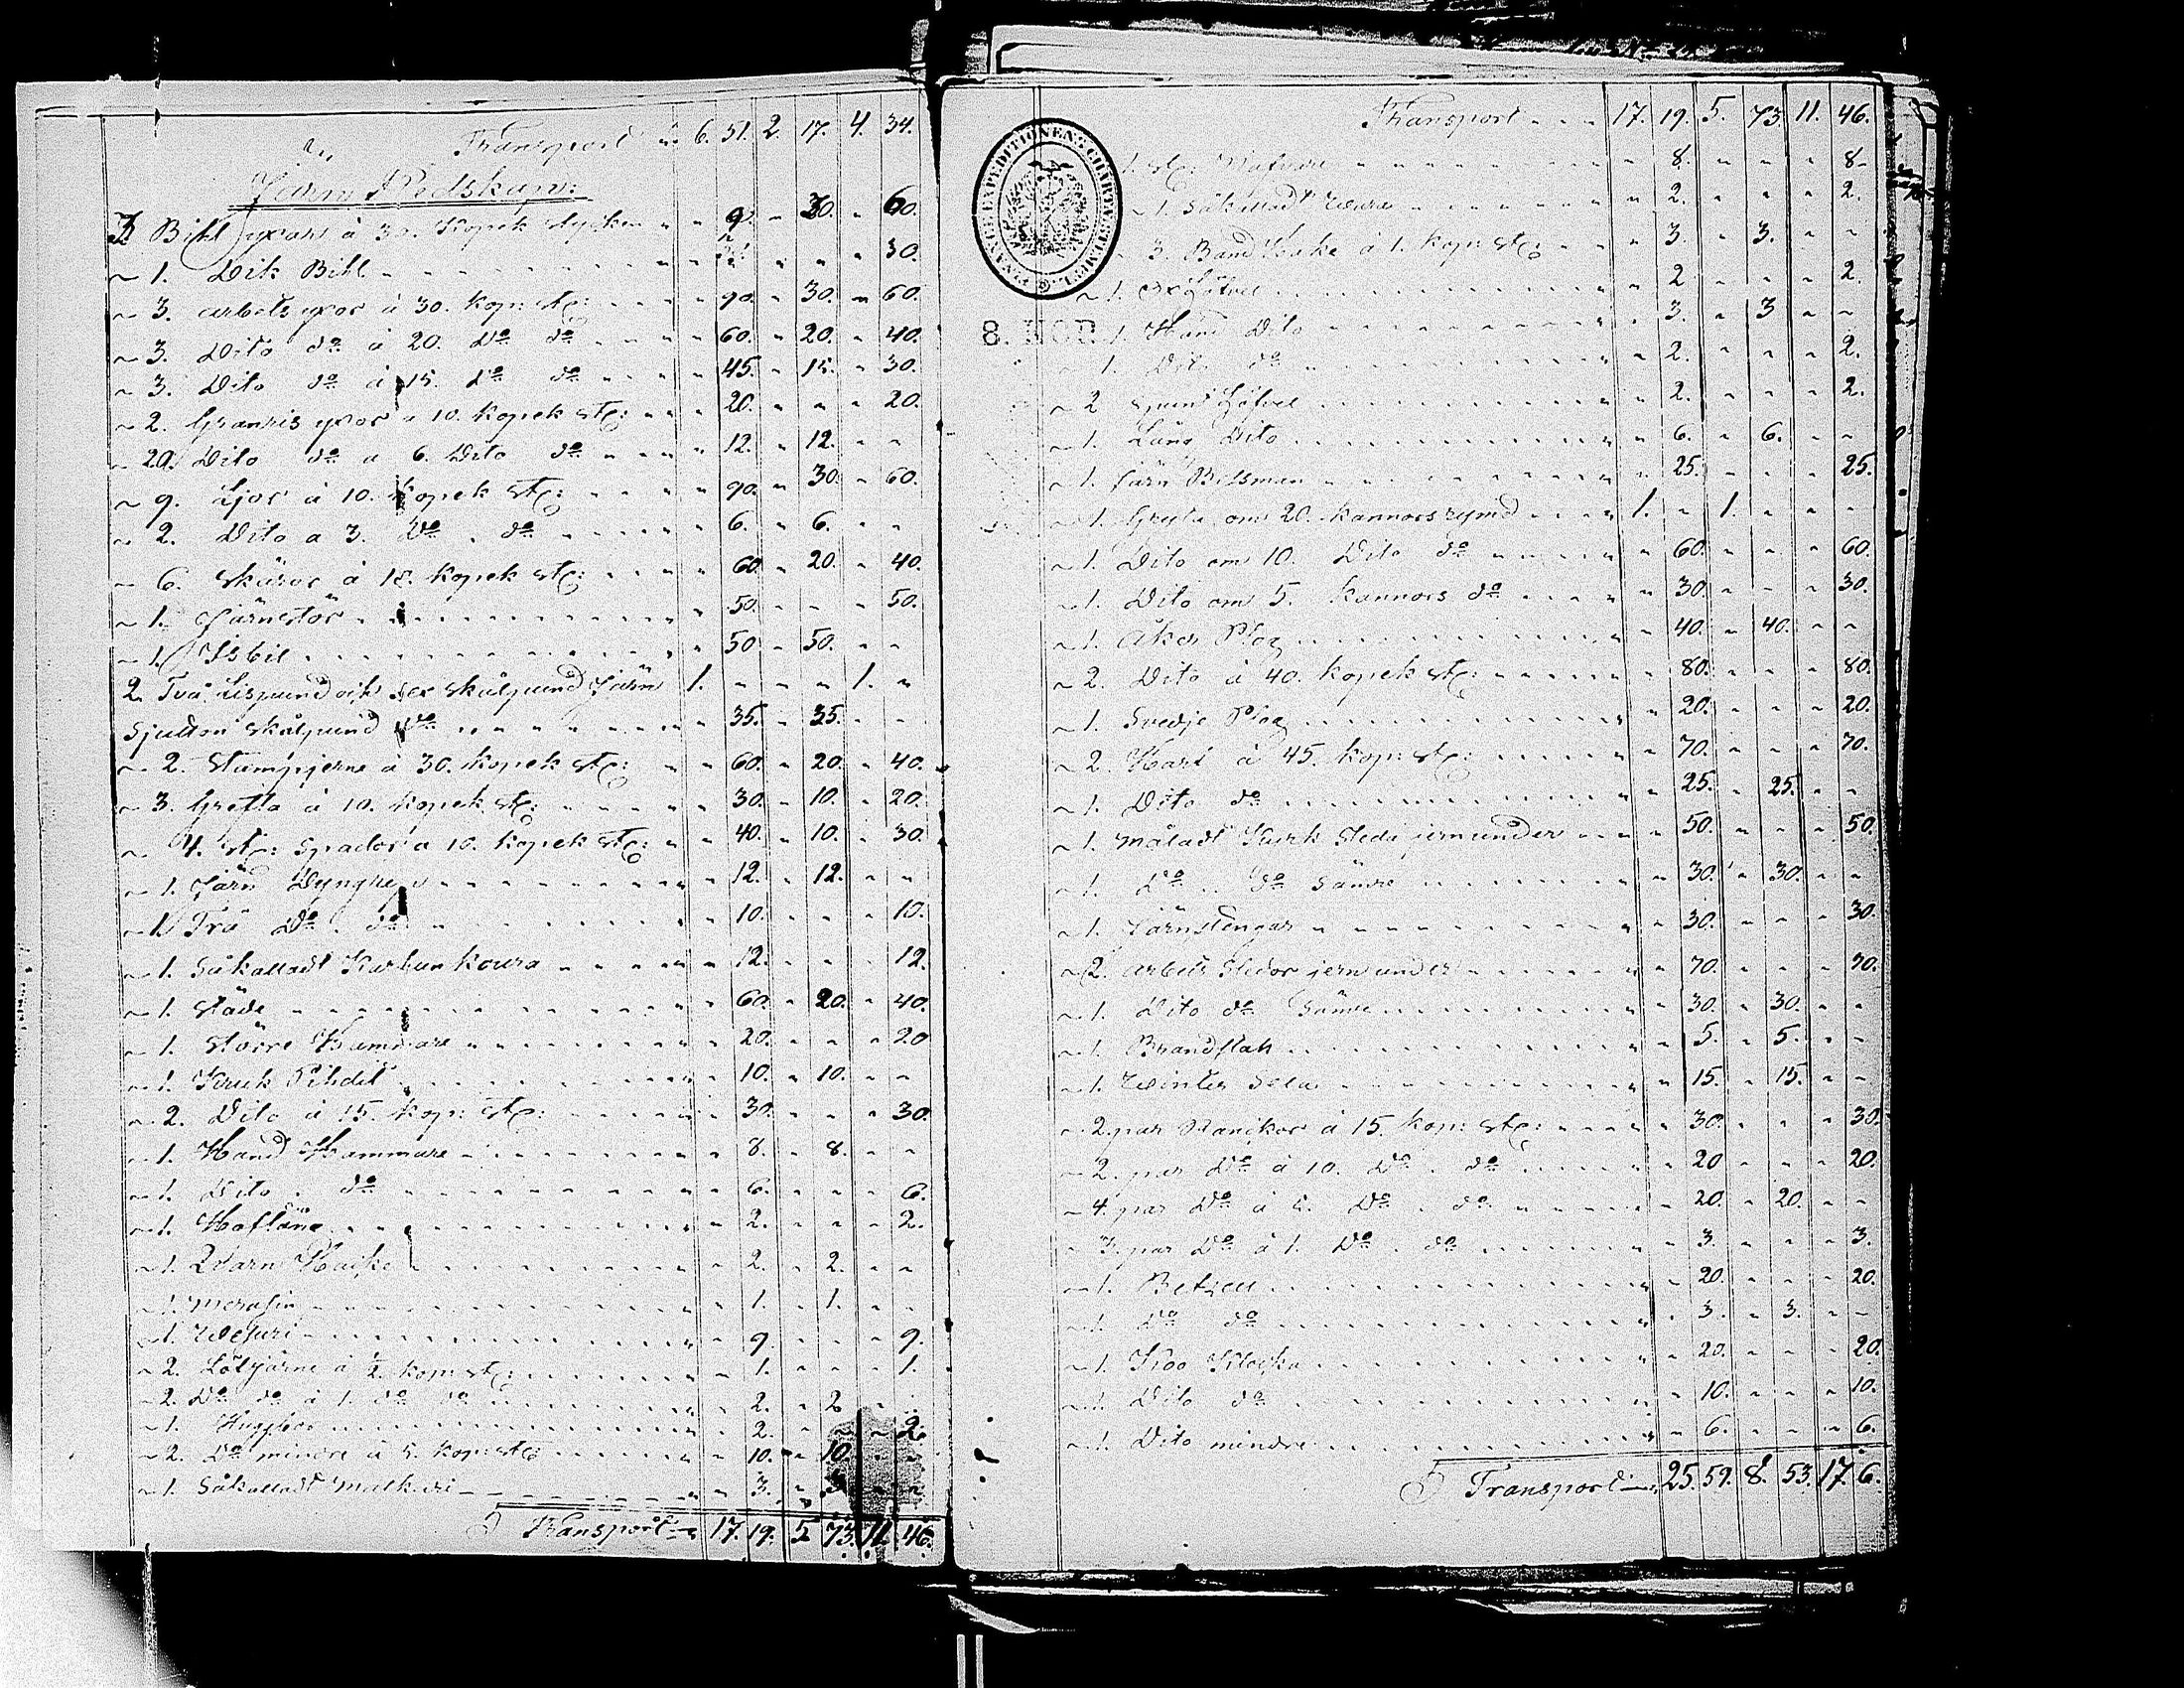 Transport " 6. 51. 2. 17. 4. 34.
Järn Redskap:
3 Bihl yxor à 30. Kopek stycken " " 90. " 30. " 60.
~ 1. Dik Bihl " " 30. " " " 30.
~ 3. arbets yxor à 30. kop: st: " " 90. " 30. " 60.
~ 3. Dito do à 20. Do do " " 60. " 20. " 40.
~ 3. Dito do à 15. Do do " " 45. " 15. " 30.
~ 2. Granris yxor à 10. Kopek st: " " 20. " " " 20.
~ 2. Dito do à 6. Dito do " " 12. " 12. " "
~ 9. Ljor à 10. Kopek st: " " 90. " 30. " 60.
~ 2. Dito à 3. Do do " " 6. " 6. " "
~ 6. Skäror à 10. Kopek st: " " 60. " 20. " 40.
~ 1. Järnstör " " 50. " " " 50.
~ 1. Isbil " " 50. " 50. " "
2. Två Lispund och sex skålpund Järn 1. " " " 1. "
Sjutton skålpund do " " 35. " 35. " "
~ 2. Stampjerne à 30. kopek st: " " 60. " 20. " 40.
~ 3. Grefta à 10. kopek st: " " 30. " 10. " 20.
~ 4. st: Spador à 10. kopek st: " " 40. " 10. " 30.
~ 1. Järn Dyngrep " " 12. " 12. " "
~ 1. Trä Do do " " 10. " " " 10.
~ 1. Såkalladt Karhun koura " " 12. " " " 12.
~ 1. Städe " " 60. " 20. " 40.
~ 1. Större Hammare " " 20. " " " 20
~ 1. Kruk Pihdit " " 10. " 10. " "
~ 2. Dito à 15. kop: st: " " 30. " " " 30.
~ 1. Hand Hammare " " 8. " 8. " "
~ 1. Dito do " " 6. " " " 6.
~ 1. Hoftång " " 2. " " " 2.
~ 1. " " 2. " 2. " "
~ 1. " " 1. " 1. " "
~ 1. " " 9. " " " 9.
~ 2. Lötjärne à ½ kop: st: " " 1. " " " 1.
~ 2. Do do à 1. do do " " 2. " 2 " "
~ 1. " " 2. " " " 2.
~ 2. Do mindre à 5. kop: st: " " 10. " 10. " "
~ 1. Såkalladt " " 3. " 3 " "
Transport 17. 19. 5 73. 11. 46.
Transport 17. 19. 5. 73. 11. 46.
FINANS EXPEDITIONENS CHARTÆ STEMPEL
1. st: " 8. " " " 8.
1. Såkalladt " 2. " " " 2.
~ 3. Band à 1. kop: st: " 3. " 3. " "
~ 1. " 2 " " " 2.
8. KOP.
1. Hand Dito " 3. " 3 " "
1. Dito do " 2. " " " 2.
~ 2 " 2. " " " 2.
~ 1. Lång Dito " 6. " 6. " "
~ 1. Järn Betsman " 25. " " " 25.
~ 1. Gryta om 20. kannors rymd 1. " 1. " " "
~ 1. Dito om 10. Dito do " 60. " " " 60.
~ 1. Dito om 5. Kannors do " 30. " " " 30.
~ 1. Åker Plog " 40. " 40. " "
~ 2. Dito à 40. kopek st: " 80. " " " 80.
~ 1. Svedje Plog " 20. " " " 20.
~ 2. Harf à 45. kop: st: " 70. " " " 70.
~ 1. Dito do " 25. " 25. " "
~ 1. Måladt Kyrk Släda jern under " 50. " " " 50.
~ 1. Do do Sämre " 30. " 30. " "
~ 1. Järnstängar " 30. " " " 30.
~ 2. arbets Slädor jern under " 70. " " " 70.
~ 1. Dito do Sämre " 30. " 30. " "
~ 1. Brandstak " 5. " 5. " "
~ 1. Winter Sela " 15. " 15. " "
~ 2. par Rankor à 15. kop: st: " 30. " " " 30.
~ 2. par Do à 10. Do do " 20 " " " 20.
~ 4. par Do à 5. Do do " 20. " 20. " "
~ 3. par Do à 1. Do do " 3. " " " 3.
~ 1. Betzel " 20. " " " 20.
~ 1. Do do " 3. " 3. " "
~ 1. Koo Klocka " 20. " " " 20.
~ 1. Dito do " 10. " " " 10.
~ 1. Dito mindre " 6. " " " 6.
Transport 25. 59. 8. 53. 17. 6.